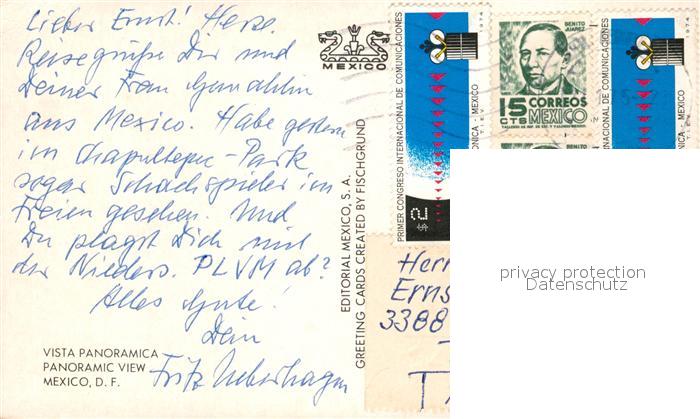 Lieber Ernst! Herz.
Reisegrüße Dir und
Deiner Frau Gemahlin
aus Mexico. Habe gestern
im Chapultepec-Park
sogar Schachspieler im
Freien gesehen. Und
Du plagst Dich mit
der Nieders. PLVM ab?
Alles Gute!
Dein
Fritz
VISTA PANORAMICA
PANORAMIC VIEW
MEXICO, D. F.
MEXICO
EDITORIAL MEXICO, S. A.
GREETING CARDS CREATED BY FISCHGRUND
PRIMER CONGRESO INTERNACIONAL DE COMUNICACIONES
$2
MEXICO
BENITO
JUAREZ
15 CORREOS
CTS MEXICO
BENITO
MEXICO
Herr
Ernst
3388
privacy protection
Datenschutz